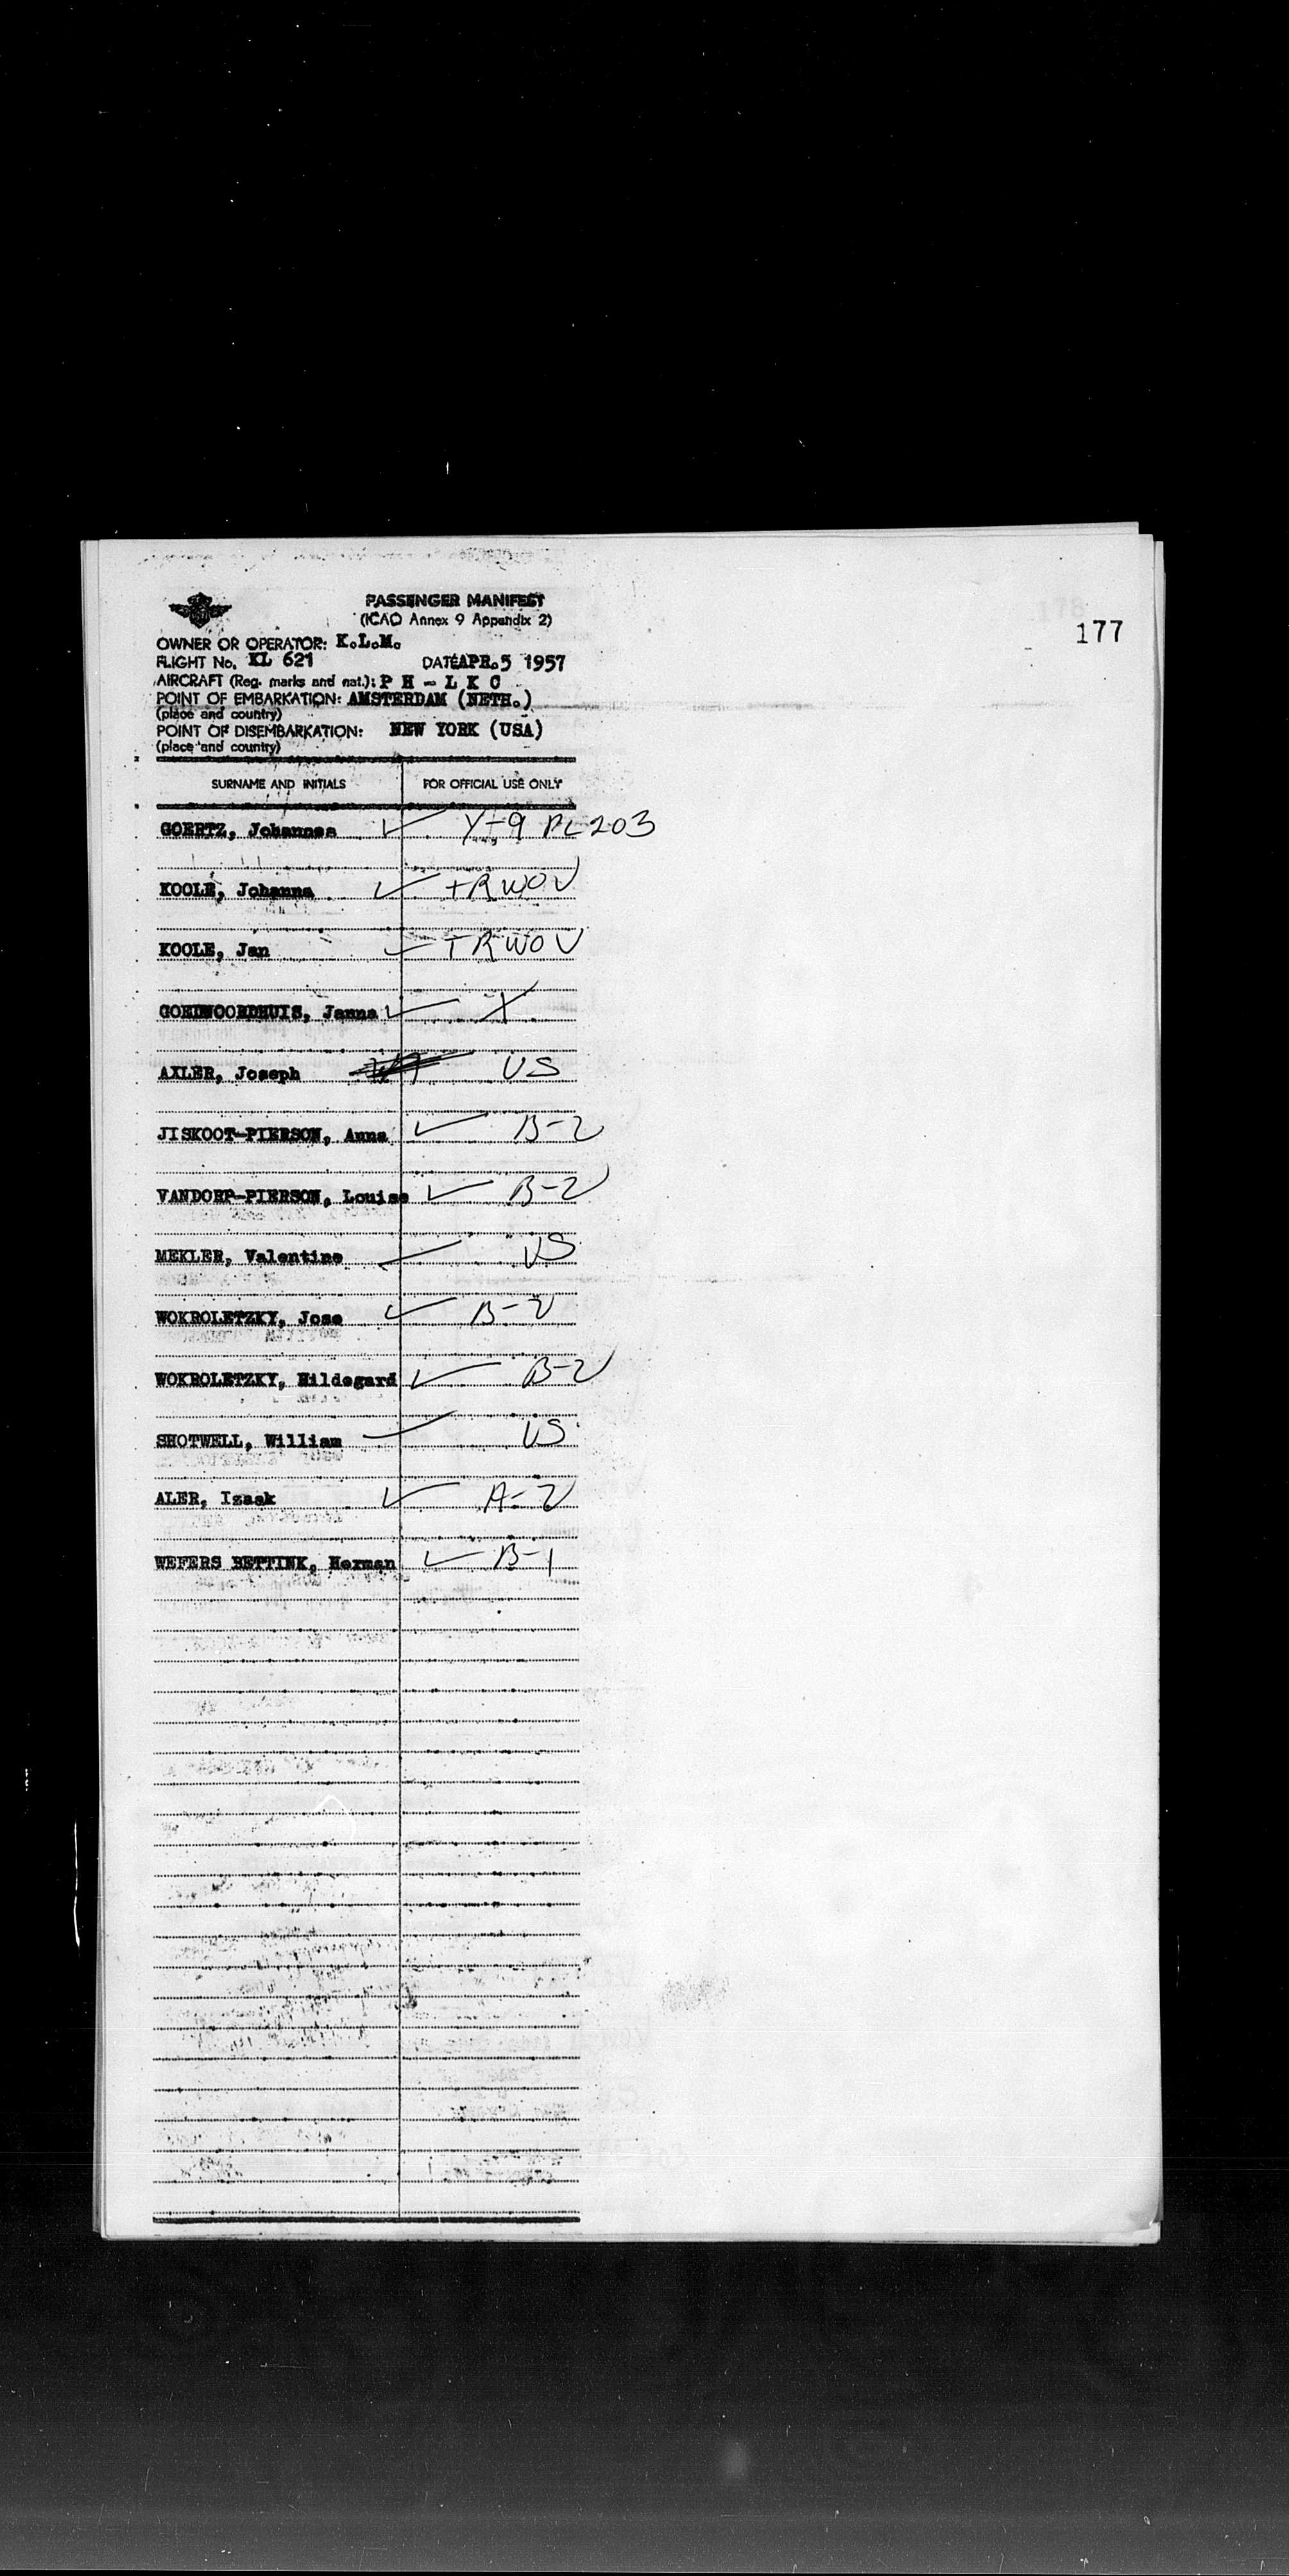 177
PASSENGER MANIFEST
(ICAO Annex 9 Appendix 2)
OWNER OR OPERATOR: K.L.M.
FLIGHT No. KL 621 DATE APR.5 1957
AIRCRAFT (Reg. marks and nat.): P H - L K C
POINT OF EMBARKATION: AMSTERDAM (NETH.)
(place and country)
POINT OF DISEMBARKATION: NEW YORK (USA)
(place and country)
SURNAME AND INITIALS FOR OFFICIAL USE ONLY
GOERTZ, Johannes ✓ Y-9 PL203
KOOLE, Johanna ✓ +RWOV
KOOLE, Jan ✓ +RWOV
GOEDNOORDHUIS, Janna ✓ X
AXLER, Joseph US
JISKOOT-PIERSON, Anna ✓ B-2
VANDORP-PIERSON, Louise ✓ B-2
MEKLER, Valentine ✓ US
WOKROLETZKY, Jose ✓ B-2
WOKROLETZKY, Hildegard ✓ B-2
SHOTWELL, William ✓ US
ALER, Izaak ✓ A-2
WEFERS BETTINK, Herman ✓ B-1